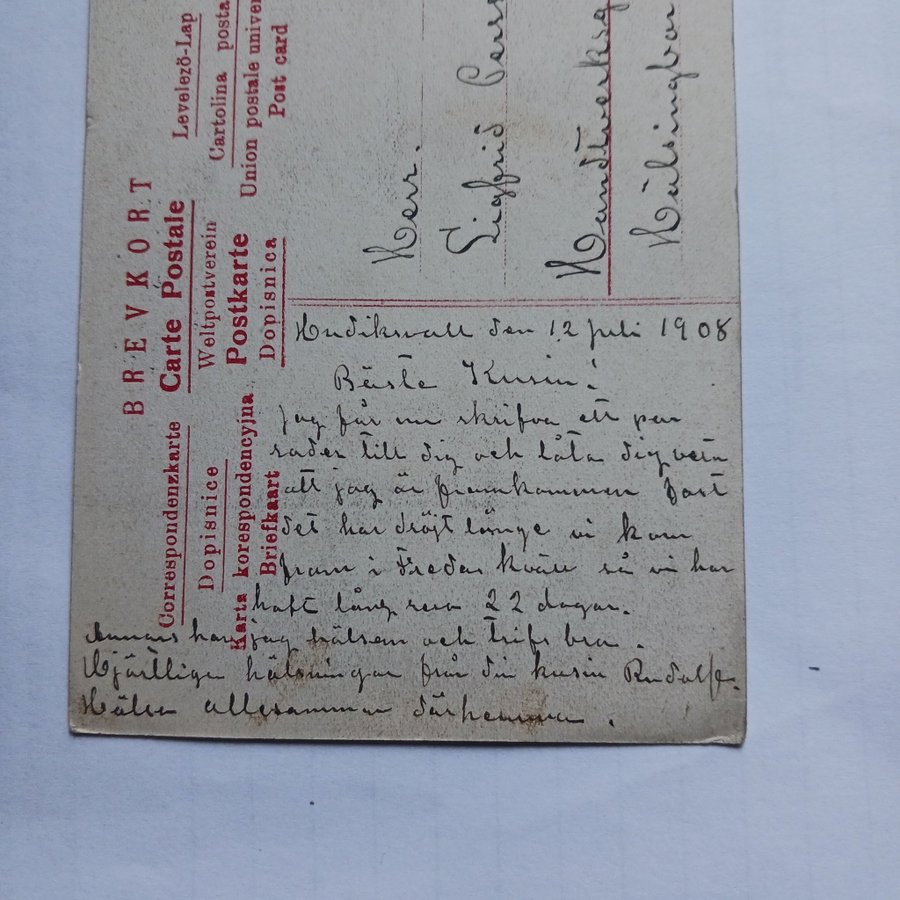 BREVKORT
Levelező-Lap
Carte Postale
Cartolina posta
Weltpostverein
Union postale univer
Postkarte
Post card
Dopisnica
Correspondenzkarte
Dopisnice
Karta korespondencyjna
Briefkaart
Herr.
Sigfrid
Handtverksg
Hälsingbor
Hudiksvall den 12 juli 1908
Bäste Kusin!
Jag får nu skrifva ett par
rader till dig och låta dig veta
att jag är framkommen fast
det har dröjt länge vi kom
fram i Fredas kväll så vi har
haft lång resa 22 dagar.
Annars har jag hälsen och trifs bra.
Hjärtliga hälsningar från din kusin Rudolf.
Hälsa allesamman därhemma.